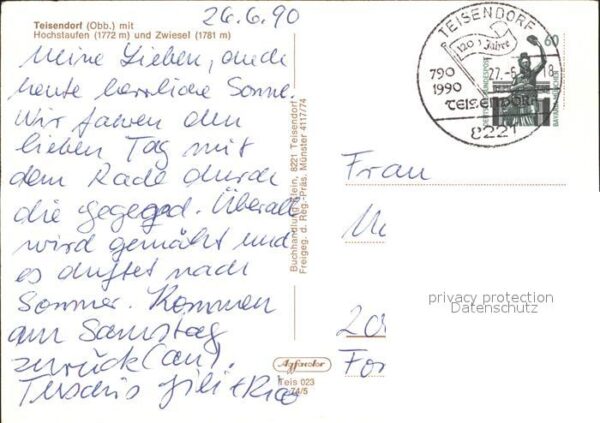 Teisendorf (Obb.) mit
Hochstaufen (1772 m) und Zwiesel (1781 m)
26.6.90
Meine Lieben, auch
heute herrliche Sonne.
Wir fahren den
lieben Tag mit
dem Rade durch
die gegeged. Überall
wird gemäht und
es duftet nach
Sommer. Kommen
am Samstag
zurück (an).
Tschüs
Buchhandlung Stein, 8221 Teisendorf
Freigeg. d. Reg.-Präs. Münster 4117/74
Agfacolor
Teis 023
74/5
TEISENDORF
1200 Jahre
790
1990
TEISENDORF
27.-6. 18
8221
60
DEUTSCHE BUNDESPOST
Frau
privacy protection
Datenschutz